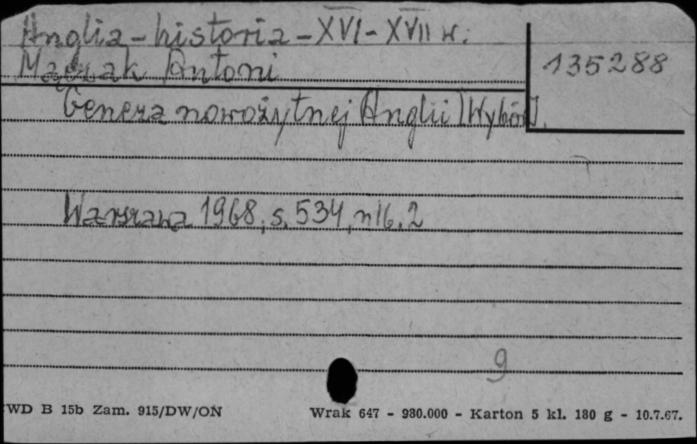 Anglia - historia - XVI - XVII w.
Mączak Antoni
135288
Geneza nowożytnej Anglii [Wybór].
Warszawa 1968, s. 534, nlb. 2
9
WD B 15b Zam. 915/DW/ON
Wrak 647 - 980.000 - Karton 5 kl. 180 g - 10.7.67.